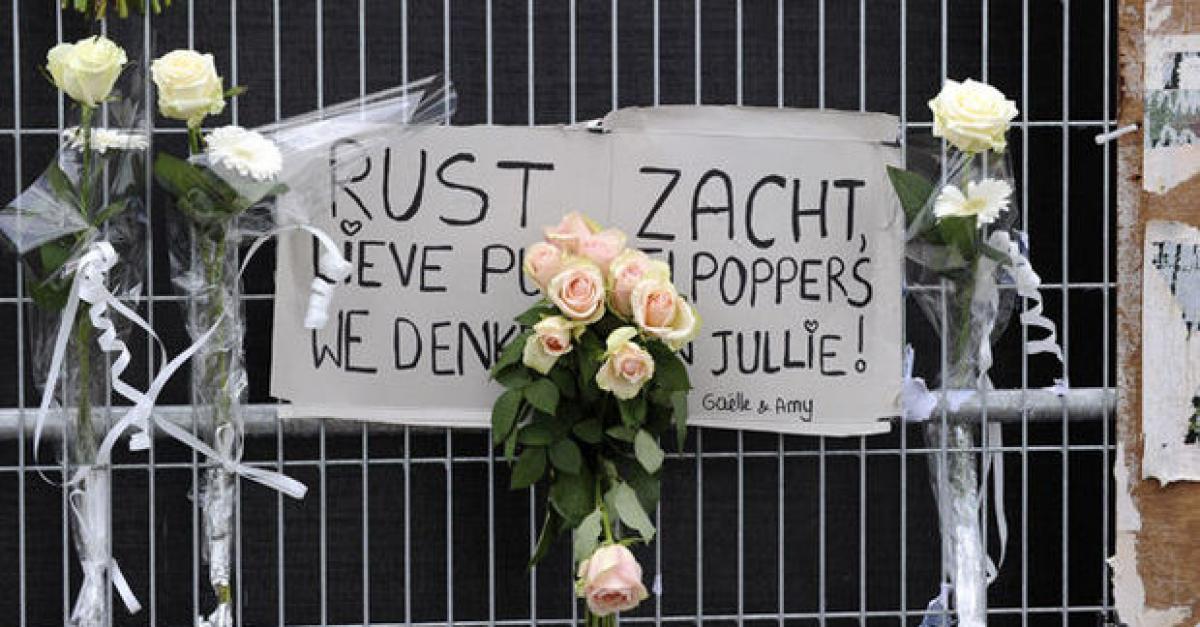 RUST ZACHT,
LIEVE POPPERS
WE JULLIE!
Gaëlle & Amy